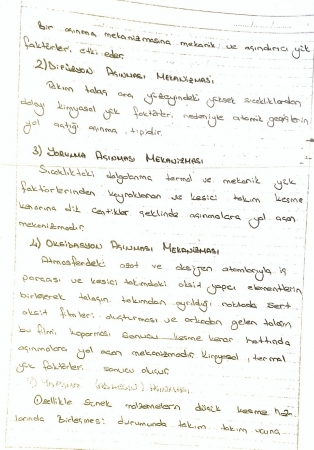 Bir aşınma mekanizmasına mekanik ve aşındırıcı yük
faktörleri etki eder.
2) DİFÜZYON AŞINMASI MEKANİZMASI
Takım talaş ara yüzeyindeki yüksek sıcaklıklardan
dolayı kimyasal yük faktörleri nedeniyle atomik geçişlerin
yol açtığı aşınma tipidir.
3) YORULMA AŞINMASI MEKANİZMASI
Sıcaklıktaki dalgalanma termal ve mekanik yük
faktörlerinden kaynaklanan ve kesici takım kesme
kenarına dik çentikler şeklinde aşınmalara yol açan
mekanizmadır.
4) OKSİDASYON AŞINMASI MEKANİZMASI
Atmosferdeki azot ve oksijen atomlarıyla iş
parçası ve kesici takımdaki oksit yapıcı elementlerin
birleşerek talaşın takımdan ayrıldığı noktada sert
oksit filmleri oluşturması ve arkadan gelen talaşın
bu filmi koparması sonucu kesme kenar hattında
aşınmalara yol açan mekanizmadır. Kimyasal, termal
yük faktörleri sonucu oluşur.
5) (ADHESİV) AŞINMASI
Özellikle sünek malzemelerin düşük kesme hız-
larında birleşmesi durumunda takım takım ucuna